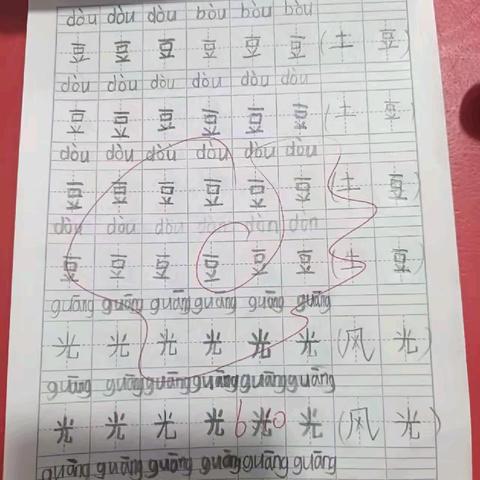 guāng guāng guāng guāng guāng guāng
光 光 光 光 光 光 (风 光)
guāng guāng guāng guāng guāng guāng
光 光 光 光 光 光 (风 光)
guāng guāng guāng guāng guāng guāng
豆 豆 豆 豆 豆 豆 (土 豆)
dòu dòu dòu dòu dòu dòu
豆 豆 豆 豆 豆 豆 (土 豆)
dòu dòu dòu dòu dòu dòu
豆 豆 豆 豆 豆 豆 (土 豆)
dòu dòu dòu dòu dòu dòu
豆 豆 豆 豆 豆 豆 (土 豆)
dòu dòu dòu dòu dòu dòu
90